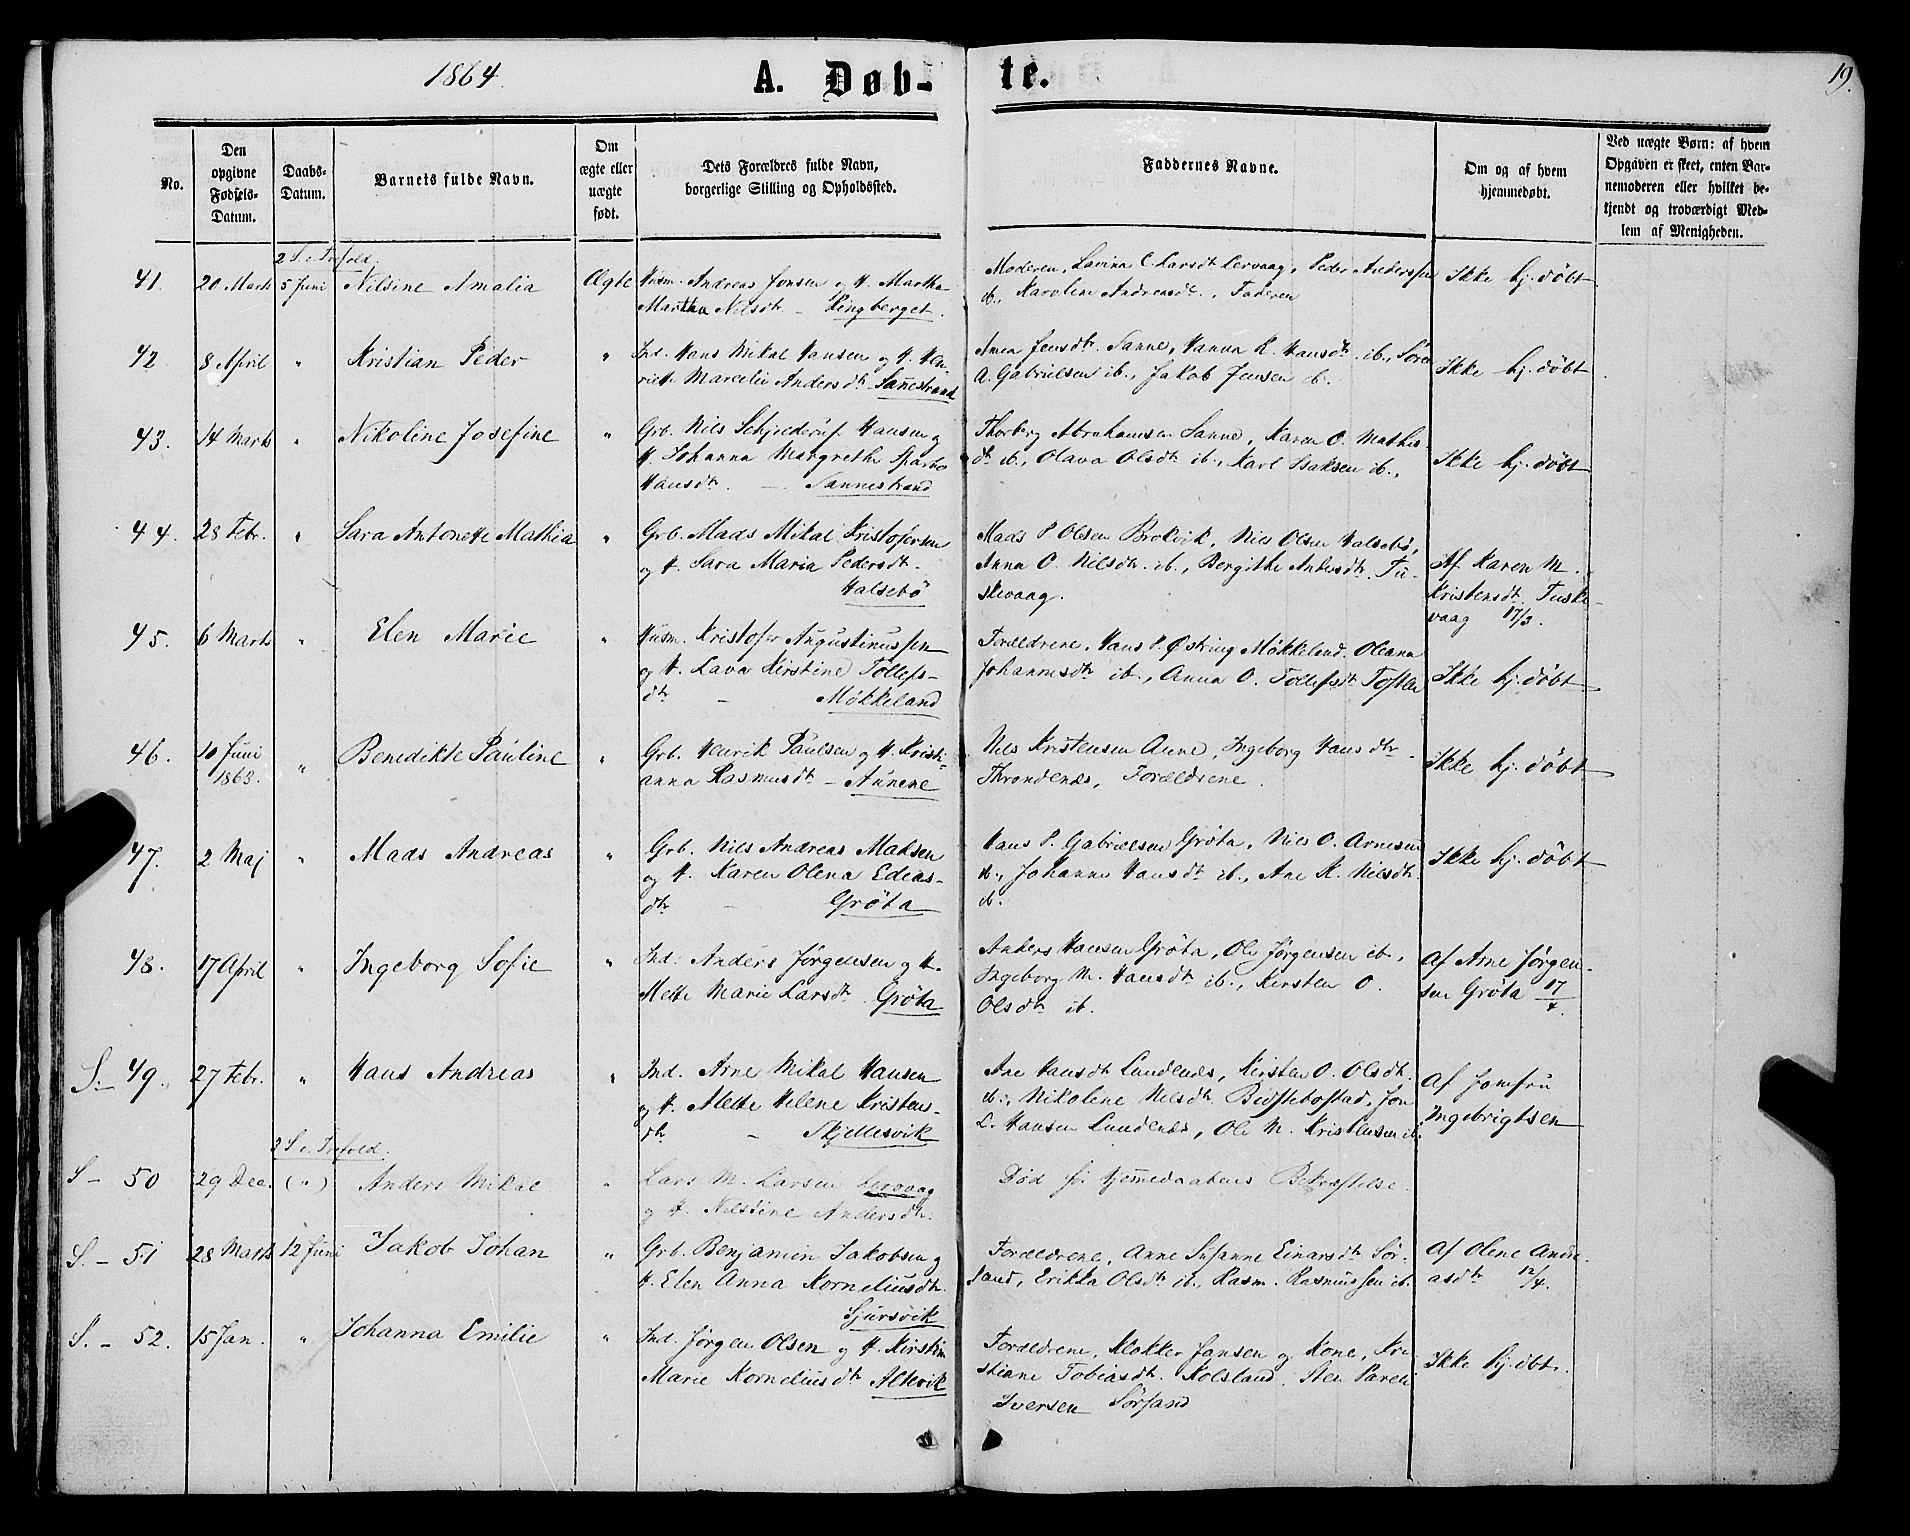 1864.
A. Døb-
te.
19.
No.
Den
opgivne
Fødsels-
Datum.
Daabs-
Datum.
Barnets fulde Navn.
Om
ægte eller
uægte
født.
Dets Forældres fulde Navn,
borgerlige Stilling og Opholdssted.
Faddernes Navne.
Om og af hvem
hjemmedøbt.
Ved uægte Børn: af hvem
Opgaven er skeet, enten Bar-
nemoderen eller hvilket be-
kjendt og troværdigt Med-
lem af Menigheden.
2 S. e. Trefold.
41. 20 Marts 5 Juni Nilsine Amalia Ægte Husm. Andreas Jonsen og H. Martha
Martha Nilsdtr. - Lingberget.
Moderen, Lavina C. Larsdtr Lervaag, Peder Anderssen
ib., Karoline Andreasdtr., Faderen
Ikke hj. døbt
42 8 April " Kristian Peder " Ind. Hans Mikal Hansen og H. Hen-
riett. Marcelie Andersdtr. Sannestrand
Anea Jensdtr. Sanne, Hanna R. Hansdtr. ib., Søren
A. Gabrielsen ib., Jakob Jensen ib.
Ikke hj. døbt
43. 14 Marts " Nikoline Josefine " Grb. Nils Schjelderuf Hansen og
H. Johanna Margrethe Sparbo
Hansdtr. - Sannestrand
Thorberg Abrahamsen Sanne, Karen O. Mathis-
dtr ib., Olava Olsdtr ib., Karl Isaksen ib.,
Ikke hj. døbt
44. 28 Febr. " Sara Antonette Mathia " Grb. Mads Mikal Kristofersen
og H. Sara Maria Pedersdtr.
Halsebö
Mads P. Olsen Brokvik, Nils Olsen Halsebö,
Anna O. Nilsdtr. ib., Bergithe Andersdtr. Tu-
skevaag.
Af Karen M.
Kristensdtr. Tuske-
vaag 17/3.
45. 6 Marts " Elen Marie " Husm. Kristofer Augustinussen
og H. Lava Kirstine Tollefs-
dtr - Møkkeland
Forældrene, Hans P. Østring Møkkeland. Oleana
Johannesdtr ib., Anna O. Tollefsdtr
Ikke hj. døbt
46. 10 Juni
1863. " Benedikte Pauline " Grb. Henrik Paulsen og H. Kristi-
anna Rasmusdtr - Aunene
Nils Kristensen Aune, Ingeborg Hansdtr
Throndenæs, Forældrene.
Ikke hj. døbt
47. 2 Maj " Mads Andreas " Grb. Nils Andreas Maksen
og H. Karen Olena Edias-
dtr - Grøta
Hans P. Gabrielsen Grøta, Nils O. Arnesen
ib., Johanne Hansdtr ib., Ane K. Nilsdtr.
ib.
Ikke hj. døbt
48. 17 April " Ingeborg Sofie " Ind. Anders Jørgensen og H.
Mette Marie Larsdtr. Grøta
Anders Hansen Grøta, Ole Jørgensen ib.,
Ingeborg M. Hansdtr ib., Kirsten O.
Olsdtr ib.
Af Arne Jørgen-
sen Grøta 17/4.
S. - 49. 27 Febr. " Hans Andreas " Ind. Arne Mikal Hansen
og H. Mette Helene Kristens-
dtr - Skjellesvik
Ane Hansdtr Lundenæs, Kirsten O. Olsdtr.
ib., Nikolene Nilsdtr., Jon
L. Hansen Lundenæs, Ole M. Kristensen ib.
Af Jomfru
Ingebrigtsen
2 S. e. Trefold.
S - 50 29 Dec. (") Anders Mikal " Lars M. Larsen Lervaag
og H. Nilsine Andersdtr.
Død før Hjemmedaabens Bekræftelse.
S. - 51 28 Marts 12 Juni Jakob Johan " Grb. Benjamin Jakobsen og
H. Elen Anna Korneliusdtr.
Sjursvik
Forældrene, Anne Susanne Einarsdtr Sør-
sand, Erikka Olsdtr ib., Rasm. Rasmussen ib.
Af Olene Andre-
asdtr 12/4.
S. - 52. 15 Jan. " Johanna Emilie " Ind. Jørgen Olsen og H. Kirstine
Marie Korneliusdtr Altevik
Forældrene, Klokker Jansen og Kone, Kri-
stiane Tobiasdtr. Kolsland,
Iversen Sørsand
Ikke hj. dbt.